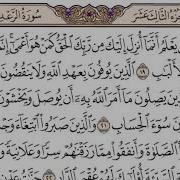 سُورَةُ الرَّعْدِ الثَّالِثَ عَشَرَ
يَعْلَمُ أَنَّمَآ أُنزِلَ إِلَيْكَ مِن رَّبِّكَ ٱلْحَقُّ كَمَنْ هُوَ أَعْمَىٰٓ إِنَّمَا
ٱلْأَلْبَٰبِ ١٩ ٱلَّذِينَ يُوفُونَ بِعَهْدِ ٱللَّهِ وَلَا يَنقُضُونَ
يَصِلُونَ مَآ أَمَرَ ٱللَّهُ بِهِۦٓ أَن يُوصَلَ وَيَخْشَوْنَ
سُوٓءَ ٱلْحِسَابِ ٢١ وَٱلَّذِينَ صَبَرُوا۟ ٱبْتِغَآءَ
ٱلصَّلَوٰةَ وَأَنفَقُوا۟ مِمَّا رَزَقْنَٰهُمْ سِرًّا وَعَلَانِيَةً